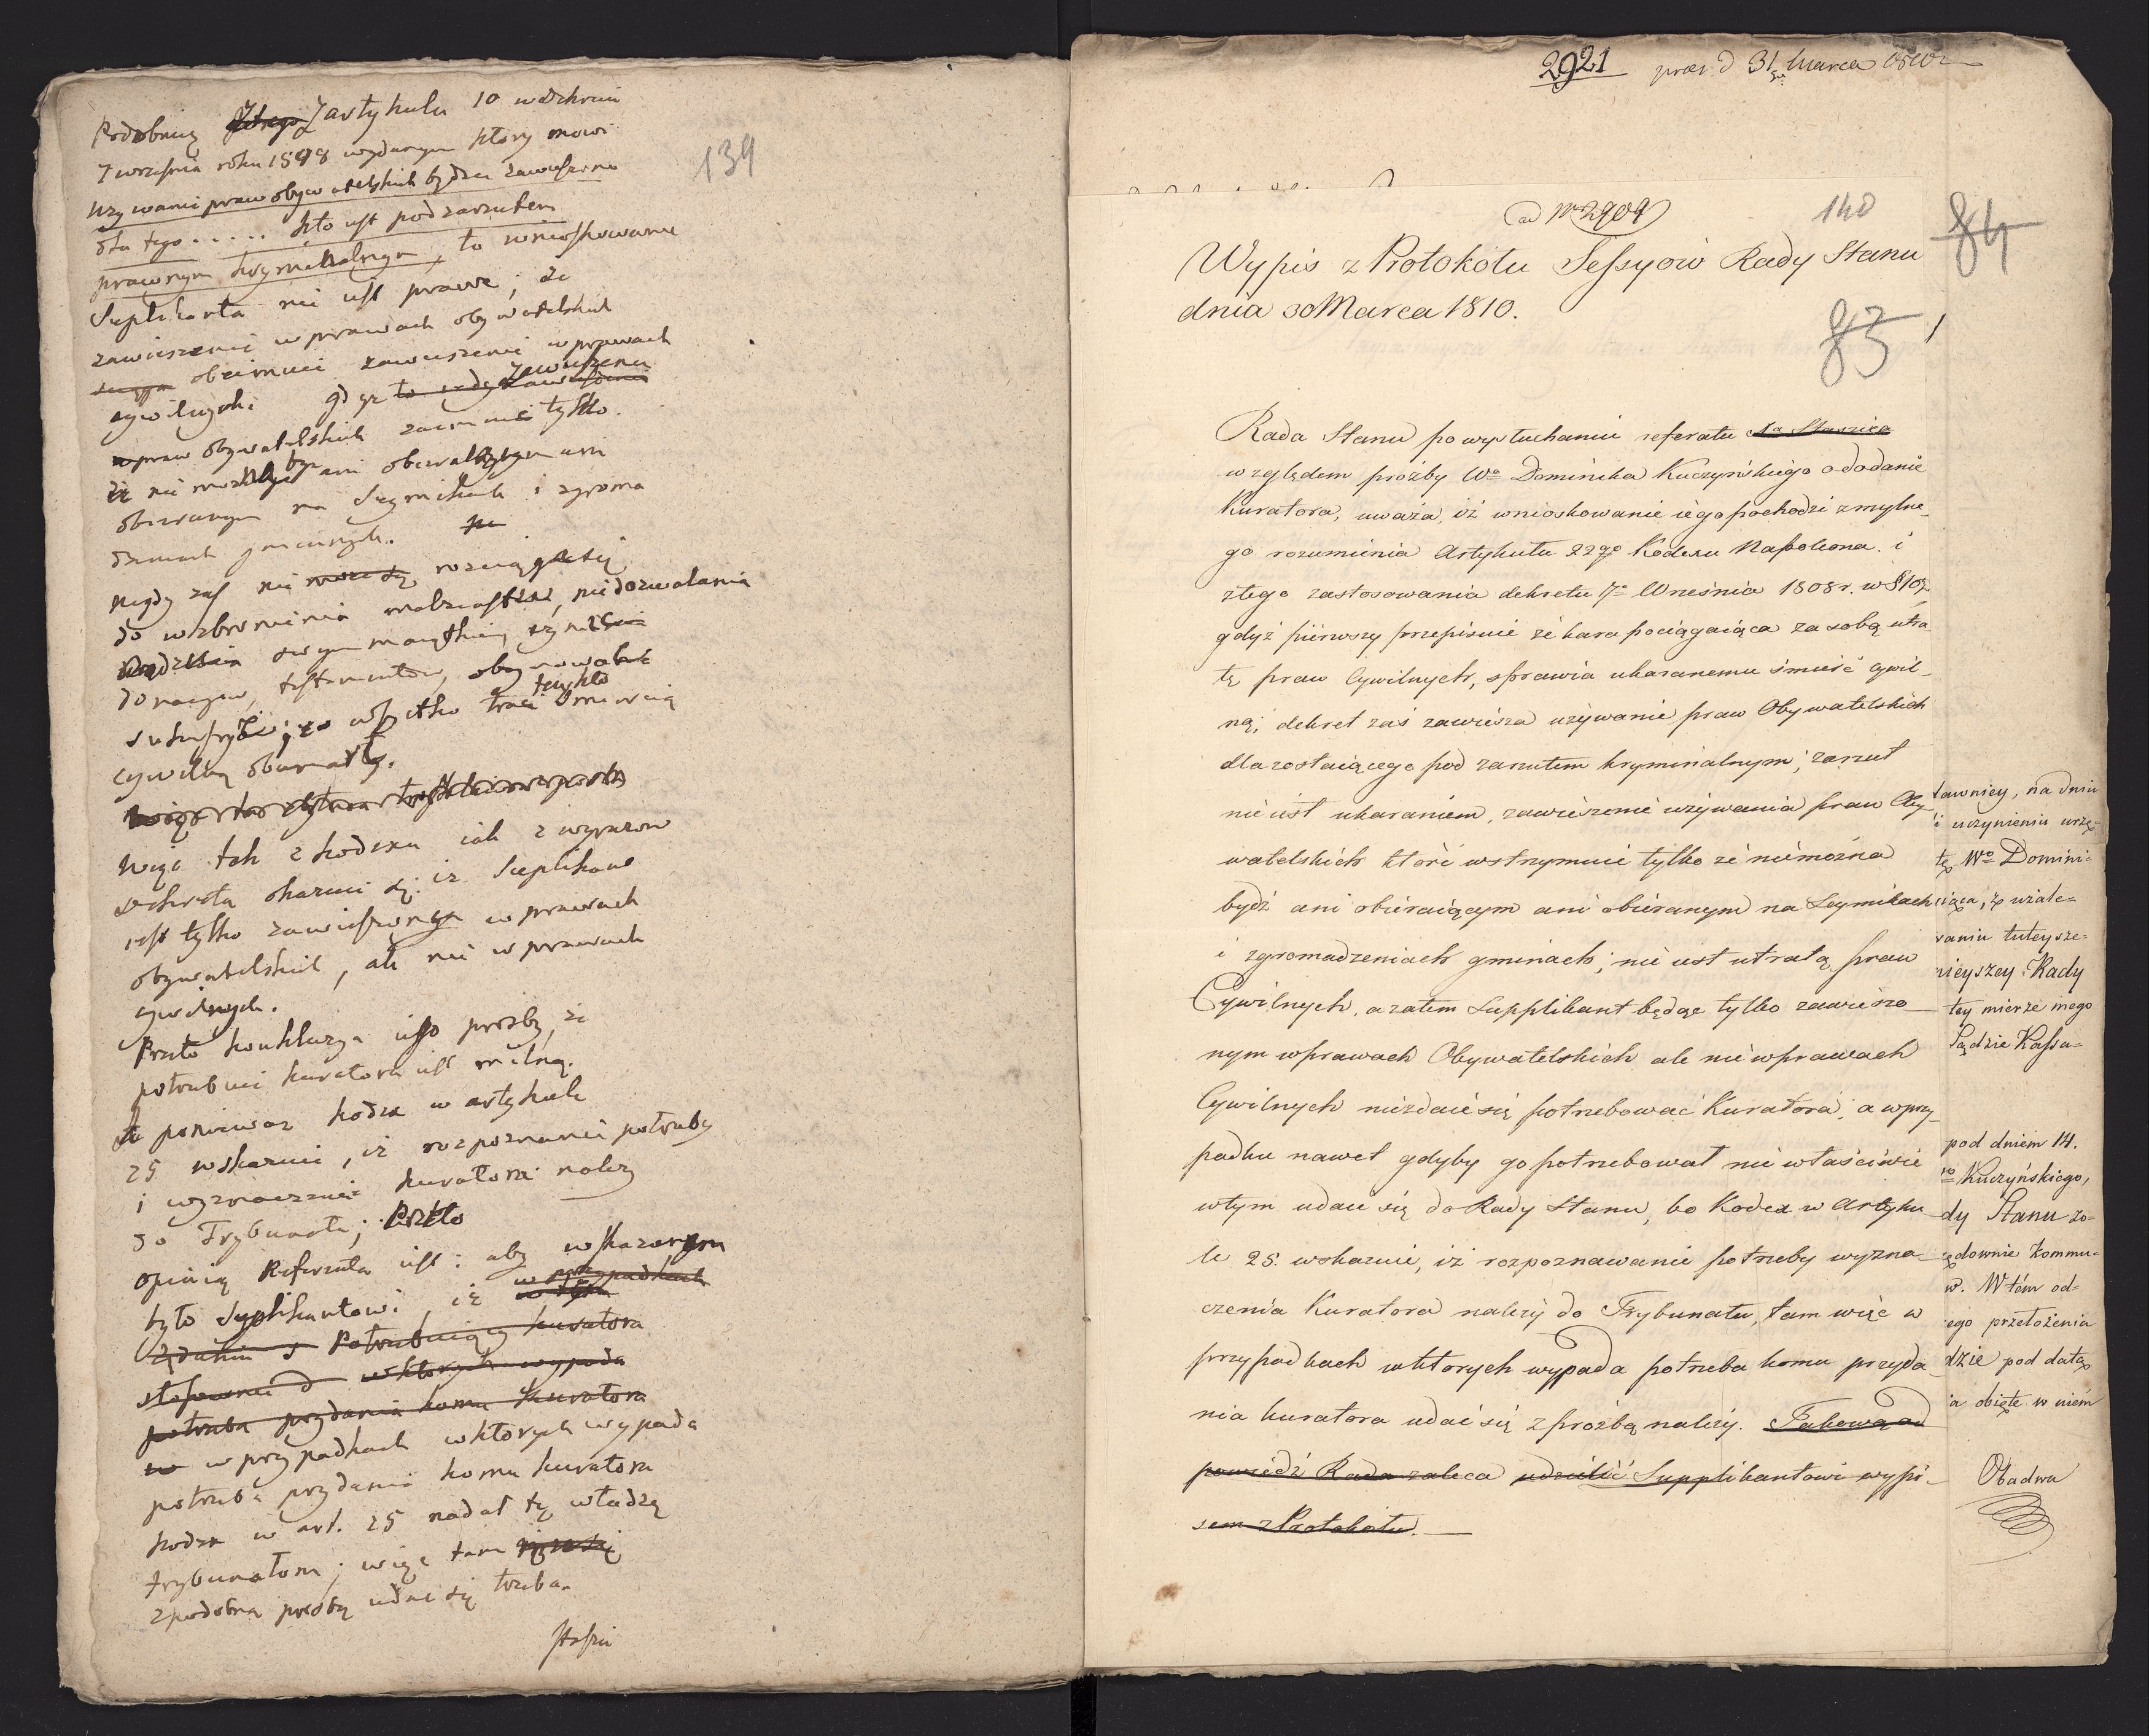 Podobnież z artykułu 10 w dekrecie
7 września roku 1808 wydanym który mowi
używanie praw obywatelskich będzie zawieszone
dla tego ..... kto iest pod zarzutem
prawnym kryminalnym, to wnioskowanie
Suplikanta nie iest prawe; że
zawieszenie w prawach obywatelskich
obeimuie zawieszenie w prawach
cywilnych. gdyż to zawieszenie
praw obywatelskich tylko
że nie może być ani obieraiącym ani
obieranym na Seymikach i zgroma
dzeniach gminnych.
nigdy zaś nie rozciąga się
do wzbronienia małżeństw, niedozwalania
swym maiątkiem, czynienia
donacyow, testamentow, obeymowania
sukcessyi; co wszystko traci ten kto śmiercią
cywilną obumarły.
Więc tak z kodexu iak z wyrazow
dekretu okazuie się iż Suplikant
iest tylko zawieszonym w prawach
obywatelskich, ale nie w prawach
cywilnych.
Przeto konkluzya iego prozby, że
potrzebuie kuratora iest mylną.
a ponieważ kodex w artykule
25 wskazuie, iż rozpoznanie potrzeby
i wyznaczenie kuratora należy
do Trybunału; Przeto
opinią Referenta iest: aby wskazanym
było Suplikantowi, iż
Potrzebuiący kuratora
stosownie do w ktorych wypada
potrzeba przydania komu kuratora
w przypadkach w ktorych wypada
potrzeba przydania komu kuratora
kodex w art. 25 nadał tę władzę
trybunałom; więc tam
z podobną prozbą udać się trzeba.
Staszic
139
2921 præs. d 31 Marca 1810
ad Nr 2909
140
84
Wypis z Protokołu Sessyow Rady Stanu
dnia 30 Marca 1810.
83
Rada Stanu po wysłuchaniu referatu Xa Staszica
względem prożby Wo Dominika Kuczyńskiego o dodanie
Kuratora, uważa, iż wnioskowanie iego pochodzi z mylne-
go rozumienia Artykułu 22go Kodexu Napoleona. i
złego zastosowania dekretu 7o Września 1808 r. w § 10.
gdyż pierwszy przepisuie że kara pociągaiąca za sobą utra-
tę praw Cywilnych, sprawia ukaranemu śmierć cywil-
ną; dekret zaś zawiesza używanie praw Obywatelskich
dla zostaiącego pod zarzutem kryminalnym; zarzut
nie iest ukaraniem, zawieszenie używania praw Oby-
watelskich ktore wstrzymuie tylko że nie można
bydź ani obieraiącym ani obieranym na Seymikach
i zgromadzeniach gminach; nie iest utratą praw
Cywilnych, a zatem Supplikant będąc tylko zawieszo-
nym w prawach Obywatelskich ale nie w prawach
Cywilnych niezdaie się potrzebować Kuratora; a w przy-
padku nawet gdyby go potrzebował nie właściwie
w tym udaie się do Rady Stanu, bo Kodex w Artyku-
le 25. wskazuie, iż rozpoznawanie potrzeby wyzna-
czenia Kuratora należy do Trybunału, tam więc w
przypadkach w ktorych wypada potrzeba komu przyda-
nia kuratora udać się z prożbą należy. Takową od
powiedź Rada zaleca udzielić Supplikantowi wypi-
sem z Protokołu.
tawniey, na dniu
i uczynieniu urzę-
tę Wo Domini-
iąca, z użale-
waniu tuteysze-
nieyszey Rady
tey mierze inego
Sądzie Kassa-
pod dniem 14.
o Kuczyńskiego,
dy Stanu zo-
ędownie kommu-
w. W tém od-
ego przełożenia
dzie pod datą
ia obięte w niém
Obadwa